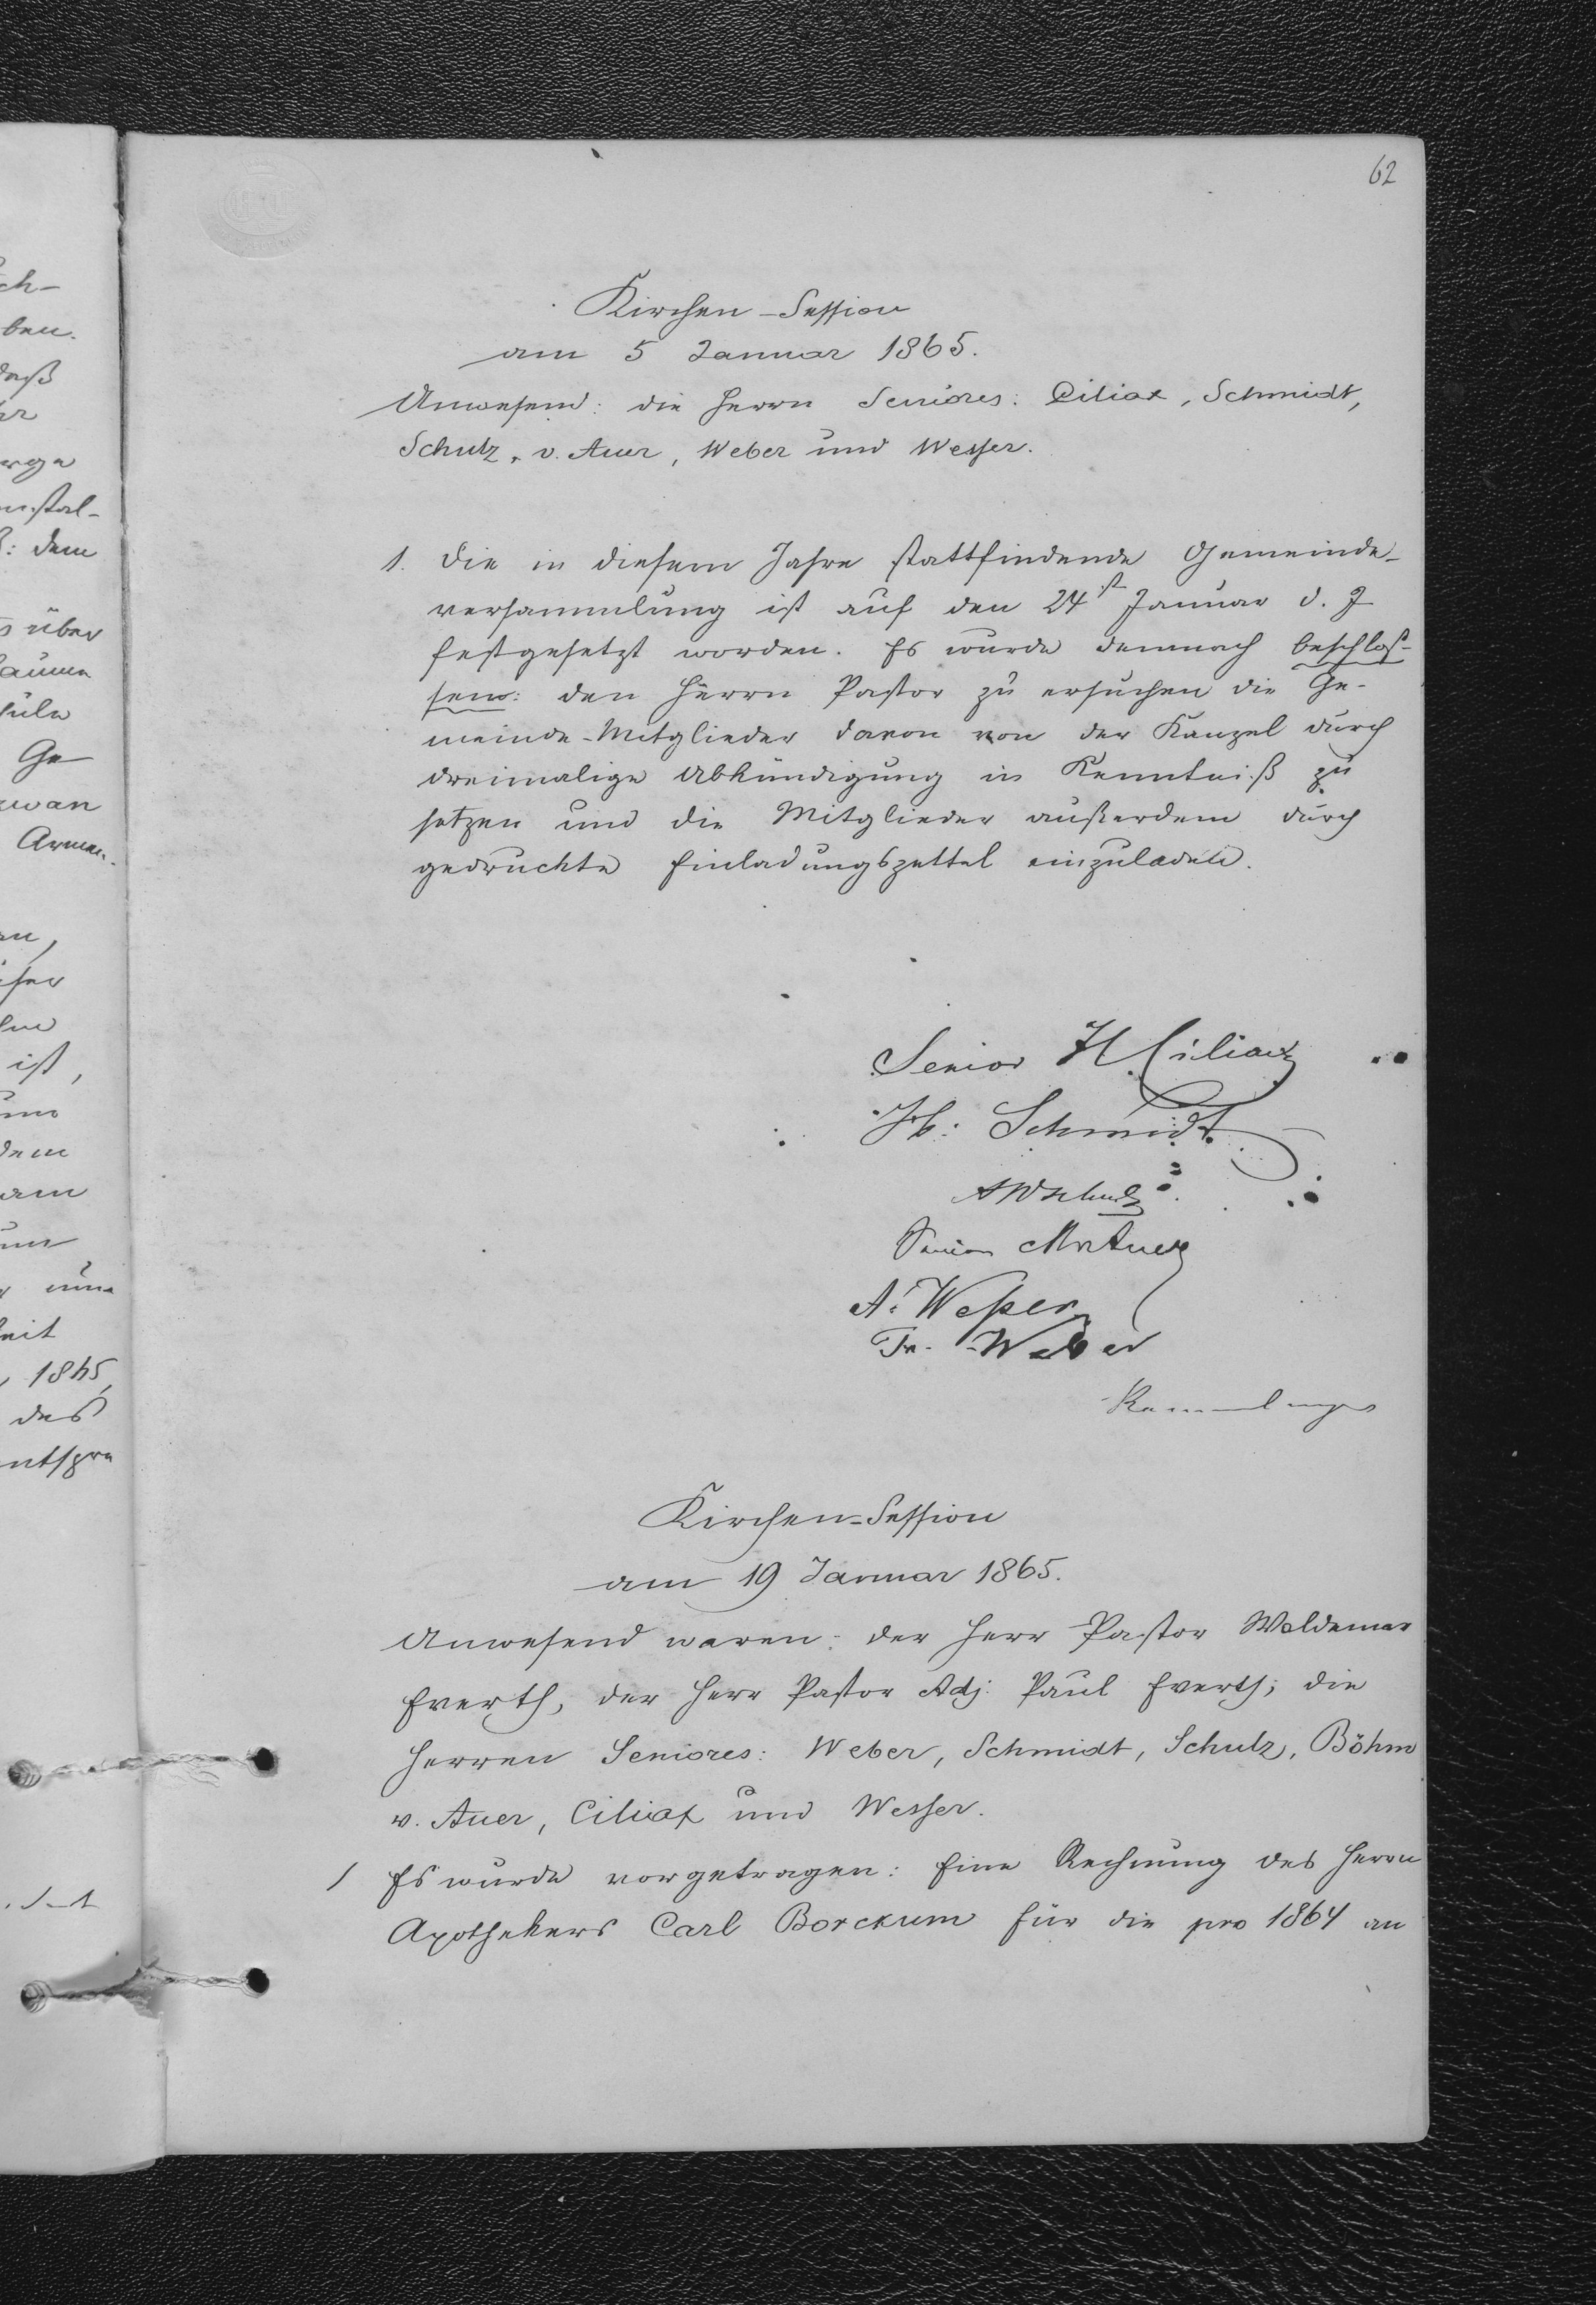 62
Kirchen-Session
am 5 Januar 1865.
Anwesend: die Herrn Seniores: Ciliax, Schmidt,
Schulz, v. Auer, Weber und Wesser.
1. Die in diesem Jahre stattfindende Gemeinde-
versammlung ist auf den 24st Januar d. J
festgesetzt worden. Es wurde demnach beschlos-
sen: den Herrn Pastor zu ersuchen die Ge-
meinde-Mitglieder davon von der Kanzel durch
dreimalige Abkündigung in Kenntniß zu
setzen und die Mitglieder außerdem durch
gedruckte Einladungszettel einzuladen.
Senior H Ciliax
Schmidt
AW Schulz
Senior v Auer
A. Wesser
Fr. Weber
Kirchen-Session
am 19 Januar 1865.
Anwesend waren: der Herr Pastor Woldemar
Everth, der Herr Pastor Adj: Paul Everth; die
Herren Seniores: Weber, Schmidt, Schulz, Böhm
v. Auer, Ciliax und Wesser.
1 Es wurde vorgetragen: Eine Rechnung des Herrn
Apothekers Carl Borckum für die pro 1864 an
ch-
ben.
daß
dem
über
Ge
ist,
dem
am
1865,
des